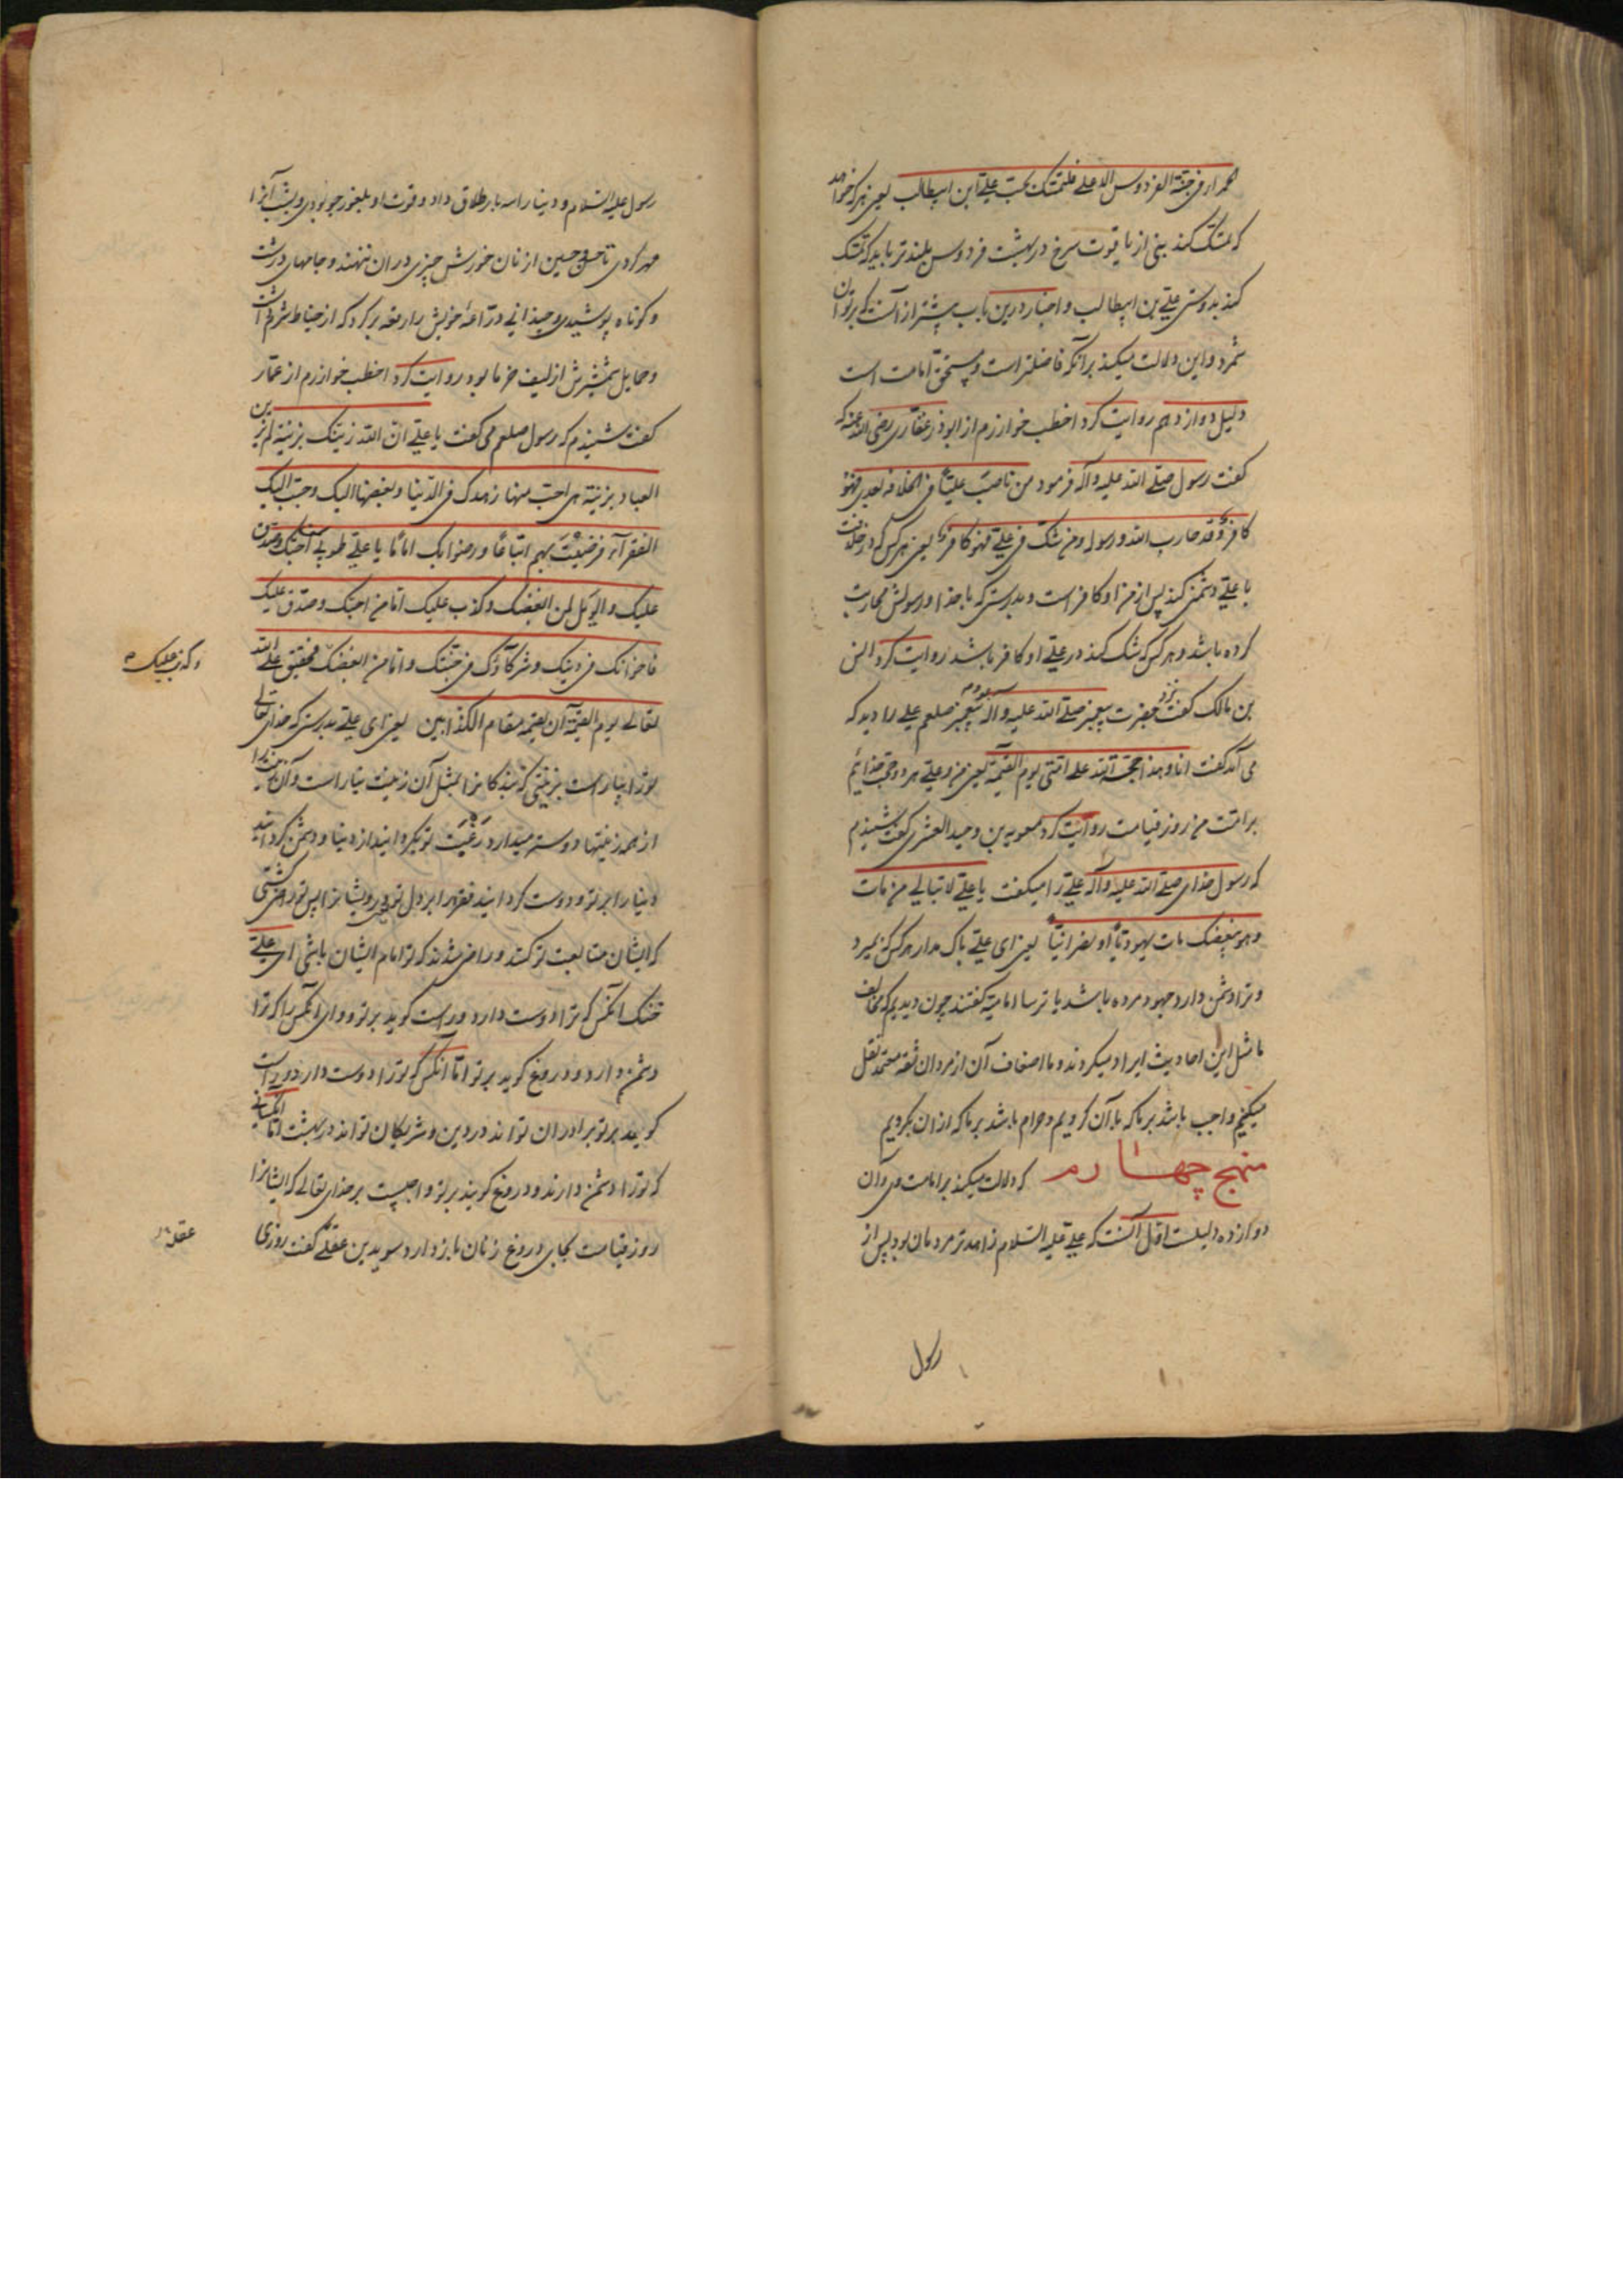 احمر در فی جنة الفردوس الاعلی فلیتمسک بحب علی ابن ابیطالب یعنی هر که خواهد
که تمسک کند بنی از یاقوت سرخ در بهشت فردوس بلندتر باید که تمسک
کند بدوستی علی بن ابیطالب و اخبار درین باب بیشتر از آنست که بر توان
شمرد و این دلالت میکند برآنکه فاضلتر است و مستحق امامت است
دلیل دوازدهم روایت کرد اخطب خوارزم از ابوذر غفاری رضی الله عنه که
گفت رسول صلی الله علیه و آله فرمود من ناصب علیا فی الخلافه بعدی فهو
کافر وقد حارب الله و رسوله و من شک فی علی فهو کافر یعنی هر کس که در خلافت
با علی دشمنی کند پس از من او کافر است و بدرستی که با خدا و رسولش محاربت
کرده باشد و هر کس که شک کند در علی او کافر باشد روایت کرد انس
بن مالک گفت نزد حضرت پیغمبر صلی الله علیه و آله بودم پیغمبر صلعم علی را دید که
می آمد گفت انا و هذا حجة الله علی امتی یوم القیمة یعنی من و علی هر دو حجت خدائیم
بر امت من روز قیامت روایت کرد معویه بن وحید العشری گفت شنیدم
که رسول خدای صلی الله علیه و آله علی را میگفت یا علی لا تبالی من مات
و هو یبغضک مات یهودیا او نصرانیا یعنی ای علی باک مدار هر کس که بمیرد
و ترا دشمن دارد جهود مرده باشد یا ترسا امامیه گفتند چون دیدیم که مخالف
ما مثل این احادیث ایراد میکردند و ما اضعاف آن از مردان ثقه معتمد نقل
میکنیم واجب باشد بر ما که بآن گرویم و حرام باشد بر ما که از ان بگردیم
منهج چهارم که دلالت میکند بر امامت وی و آن
دوازده دلیلست اول آنست که علی علیه السلام زاهدتر مردمان بود پس از
رسول
رسول علیه السلام و دنیا را سه بار طلاق داد و قوت او بلغور جو بودی و بشب آنرا
مهر کردی تا حسن و حسین از نان خورش چیزی در ان ننهند و جامهای درشت
و کوتاه پوشیدی و چندانی دراعهٔ خویش را رقعه بر کرد که از خیاط شرم داشت
و حمایل شمشیرش از لیف خرما بود روایت کرد اخطب خوارزم از عمار
گفت شنیدم که رسول صلعم می گفت یا علی ان الله زینک بزینة لم یزین
العباد بزینة هی احب منها زهدک فی الدنیا و بغضها الیک و حبب الیک
الفقرآء فرضیت بهم اتباعا و رضوا بک اماما یا علی طوبی لمن احبک و صدق
علیک و الویل لمن ابغضک و کذب علیک اما من احبک و صدق علیک
فاخوانک فی دینک و شرکآؤک فی جنتک و اما من ابغضک فحقیق علی الله
و کذب علیک
تعالی یوم القیمة ان یقیمه مقام الکذابین یعنی ای علی بدرستی که خدای تعالی
تو را بیاراست بزینتی که بندکانرا بمثل آن زینت نیاراست و آن
از همه زینتها دوستر میدارد رغبت تو بکردانید از دنیا و دشمن کردانید
دنیا را بر تو و دوست کردانید فقرا را بر دل تو درویشانرا پس تو راضی کشتی
که ایشان متابعت تو کنند و راضی شدند که تو امام ایشان باشی ای علی
خنک آنکس که ترا دوست دارد و راست کوید بر تو و وای آنکس را که ترا
دشمن دارد و دروغ کوید بر تو اما آنکس که تو را دوست دارد و راست
کوید بر تو برادران تو اند در دین و شریکان تو اند در بهشت اما آنکسانی
که تو را دشمن دارند و دروغ کویند بر تو واجبست بر خدای تعالی که ایشانرا
روز قیامت بجای دروغ زنان باز دارد سوید بن عقلة گفت روزی
عقلة